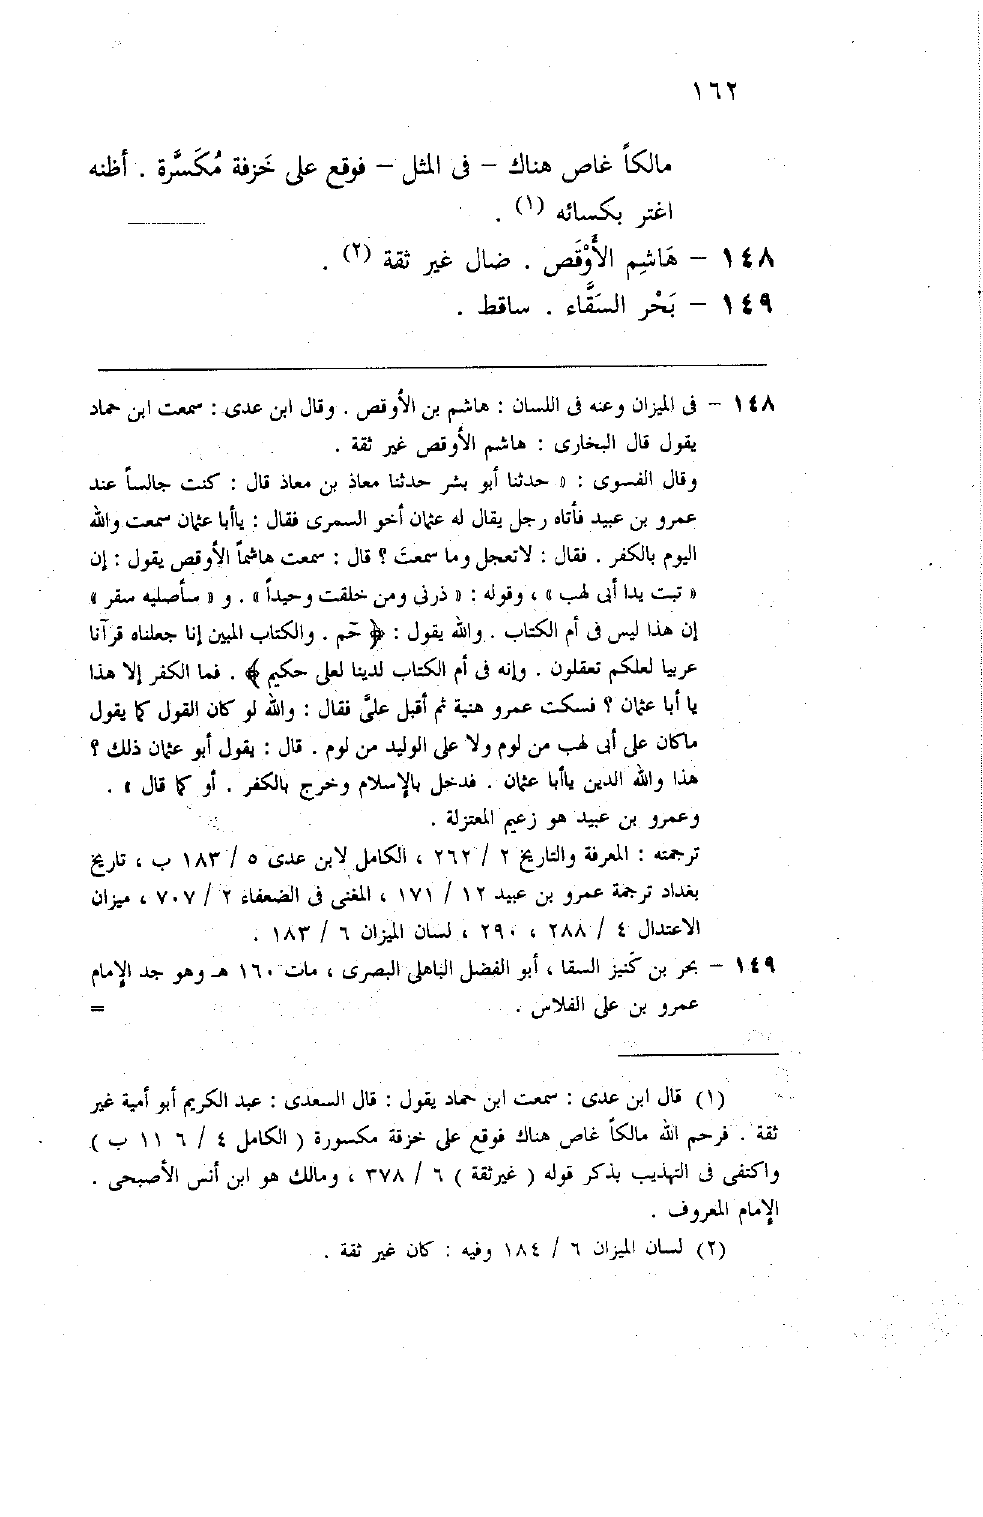 ١٦٢
مالكاً غاص هناك – فى المثل – فوقع على خَزفة مُكَسَّرة . أظنه
اغتر بكسائه (١) .
١٤٨ – هَاشِم الأَوْقَص . ضال غير ثقة (٢) .
١٤٩ – بَحْر السَقَّاء . ساقط .
١٤٨ – فى الميزان وعنه فى اللسان : هاشم بن الأوقص . وقال ابن عدى : سمعت ابن حماد
يقول قال البخارى : هاشم الأوقص غير ثقة .
وقال الفسوى : « حدثنا أبو بشر حدثنا معاذ بن معاذ قال : كنت جالساً عند
عمرو بن عبيد فأتاه رجل يقال له عثمان أخو السمرى فقال : ياأبا عثمان سمعت والله
اليوم بالكفر . فقال : لاتعجل وما سمعتَ ؟ قال : سمعت هاشماً الأوقص يقول : إن
« تبت يدا أبى لهب » ، وقوله : « ذرنى ومن خلقت وحيداً » . و « سأصليه سقر »
إن هذا ليس فى أم الكتاب . والله يقول : ﴿ حَم . والكتاب المبين إنا جعلناه قرآنا
عربيا لعلكم تعقلون . وإنه فى أم الكتاب لدينا لعلى حكيم ﴾ . فما الكفر إلا هذا
يا أبا عثمان ؟ فسكت عمرو هنية ثم أقبل علىَّ فقال : والله لو كان القول كما يقول
ماكان على أبى لهب من لوم ولا على الوليد من لوم . قال : يقول أبو عثمان ذلك ؟
هذا والله الدين ياأبا عثمان . فدخل بالإسلام وخرج بالكفر . أو كما قال » .
وعمرو بن عبيد هو زعيم المعتزلة .
ترجمته : المعرفة والتاريخ ٢ / ٢٦٢ ، الكامل لابن عدى ٥ / ١٨٣ ب ، تاريخ
بغداد ترجمة عمرو بن عبيد ١٢ / ١٧١ ، المغنى فى الضعفاء ٢ / ٧٠٧ ، ميزان
الاعتدال ٤ / ٢٨٨ ، ٢٩٠ ، لسان الميزان ٦ / ١٨٣ .
١٤٩ – بحر بن كَنيز السقا ، أبو الفضل الباهلى البصرى ، مات ١٦٠ هـ وهو جد الإمام
عمرو بن على الفلاس . =
(١) قال ابن عدى : سمعت ابن حماد يقول : قال السعدى : عبد الكريم أبو أمية غير
ثقة . فرحم الله مالكاً غاص هناك فوقع على خزفة مكسورة ( الكامل ٤ / ٦ ١١ ب )
واكتفى فى التهذيب بذكر قوله ( غيرثقة ) ٦ / ٣٧٨ ، ومالك هو ابن أنس الأصبحى .
الإمام المعروف .
(٢) لسان الميزان ٦ / ١٨٤ وفيه : كان غير ثقة .